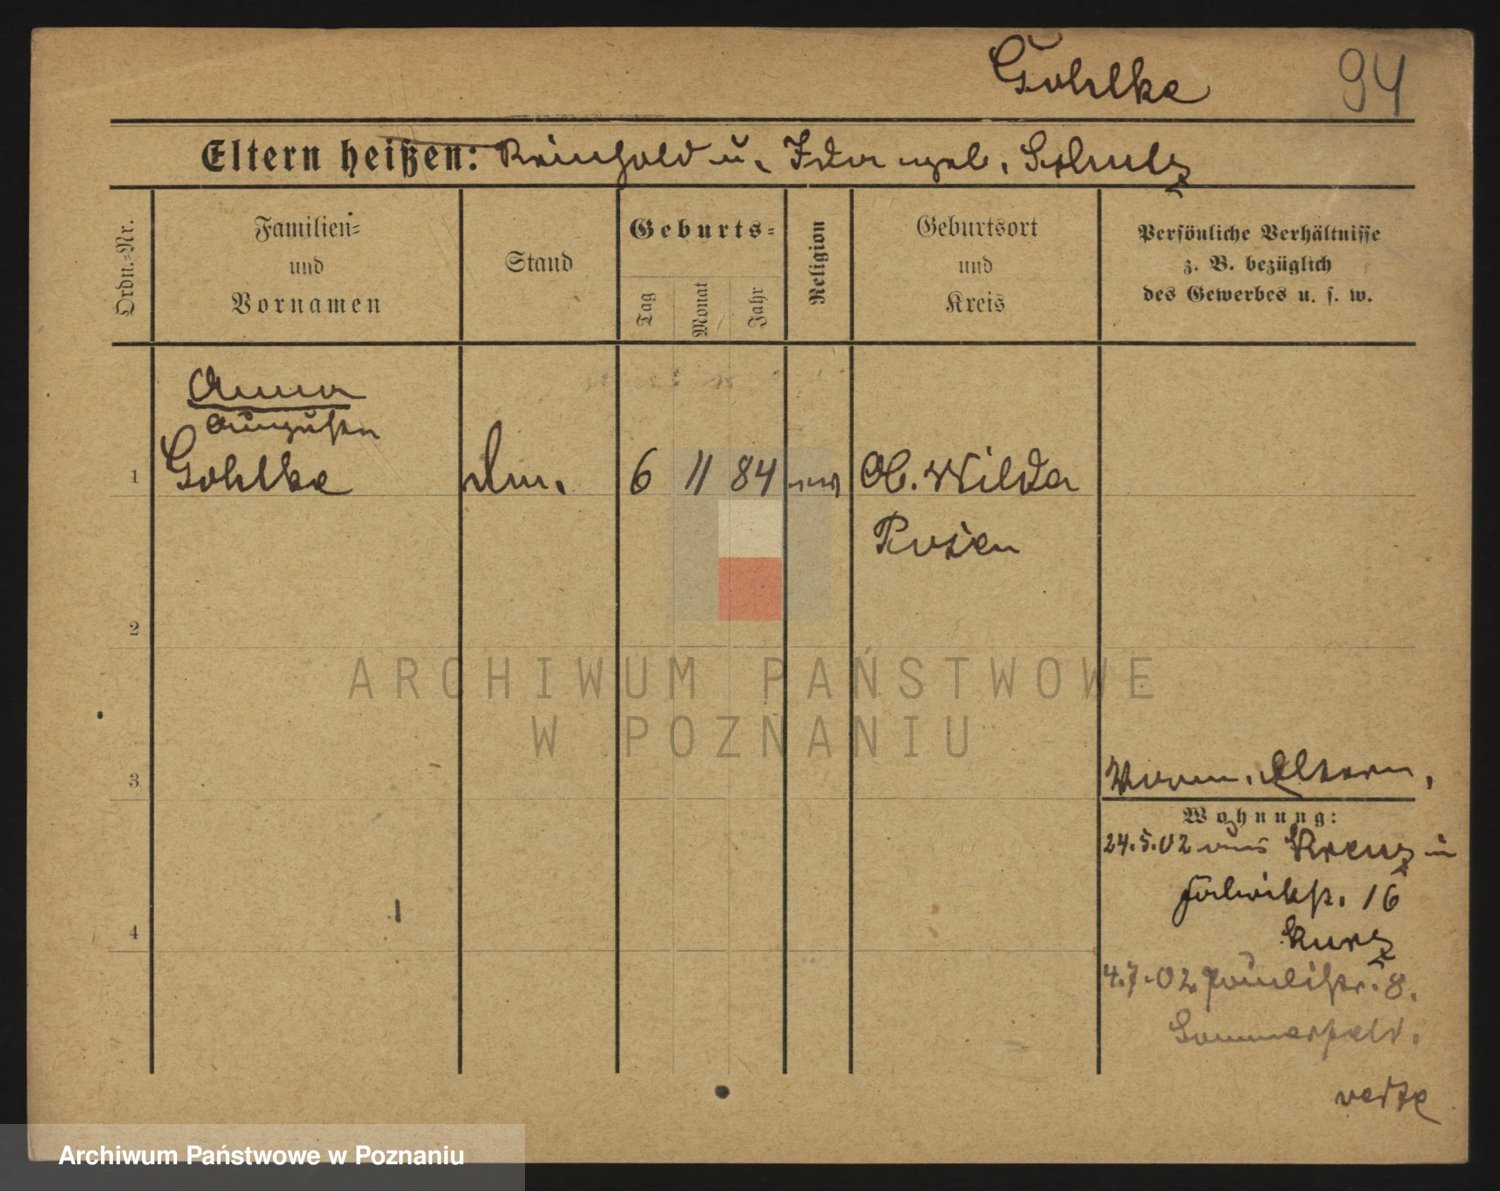 Gohlke 94
Eltern heißen: Reinhold u. Ida geb. Schulz
Ordn.-Nr.
Familien- und Vornamen
Stand
Geburts-
Tag
Monat
Jahr
Religion
Geburtsort und Kreis
Persönliche Verhältnisse z. B. bezüglich des Gewerbes u. s. w.
Anna
Auguste
1 Gohlke 6 11 84 Ob. Wilda
Posen
2
ARCHIWUM PAŃSTWOWE
W POZNANIU
3
Eltern.
Wohnung:
24.5.02 aus Kreuz
16
4
Kurz
4.7.02 Paulistr. 8.
Sommerfeld.
verte
Archiwum Państwowe w Poznaniu